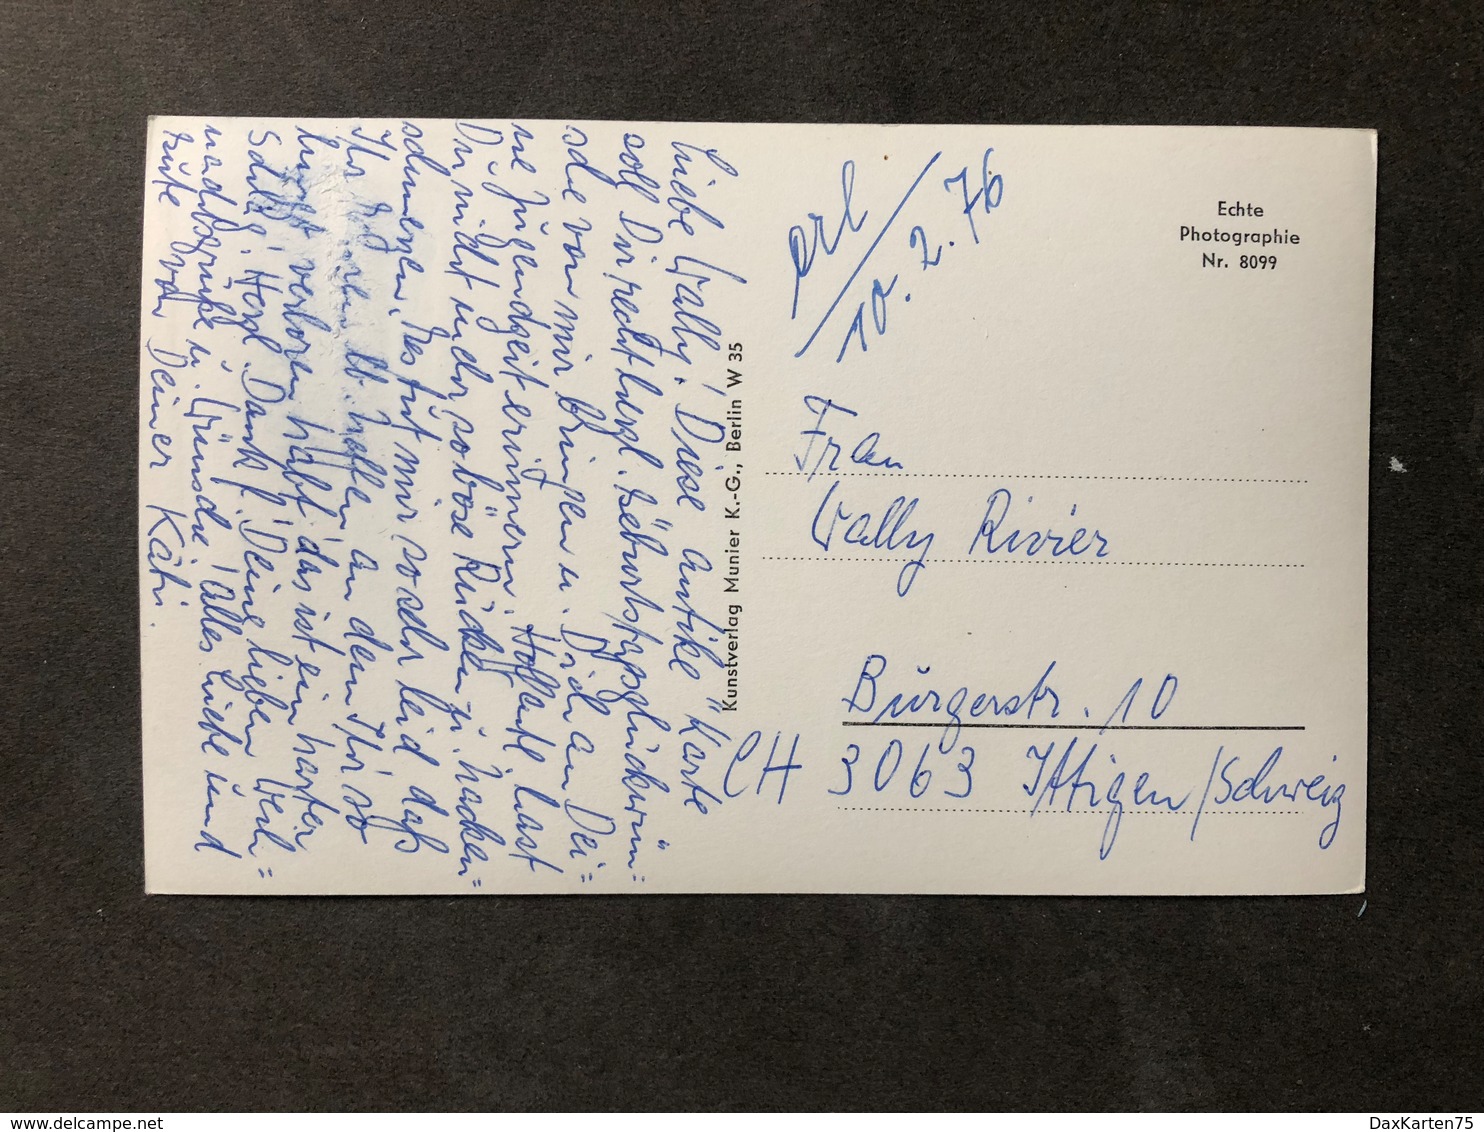 Liebe Wally! Diese "antike" Karte
soll Dir recht herzl. Geburtstagsglückwün=
sche von mir bringen u. Dich an Dei=
ne Jugendzeit erinnern. Hoffentl. hast
Du nicht mehr so böse Rücken u. Nacken=
schmerzen, des tut mir so sehr leid daß
Ihr lb. Neffen an dem Ihr so
hängt verloren habt, das ist ein harter
Schlag! Herzl. Dank f. Deine lieben Weih=
nachtsgrüße u. Wünsche, alles Liebe und
Gute von Deiner Käthi.
Kunstverlag Munier K.-G., Berlin W 35
erl
10.2.76
Echte
Photographie
Nr. 8099
Frau
Wally Rivier
Burgerstr. 10
CH 3063 Ittigen/Schweiz
DaxKarten75
delcampe.net